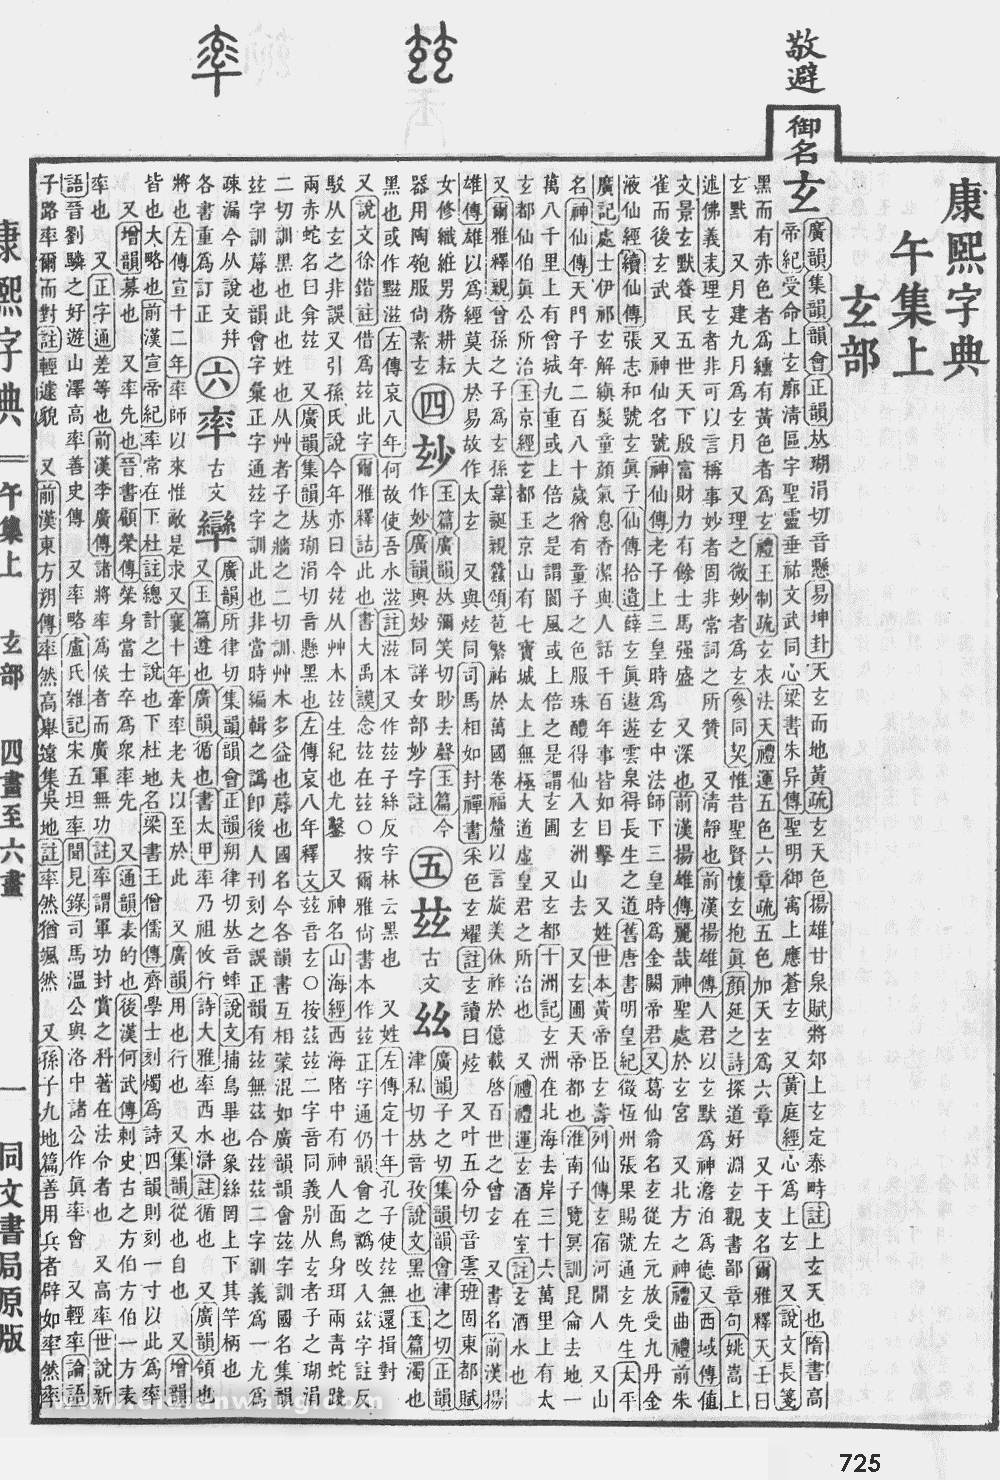 敬避
御名
康熙字典
午集上
玄部
玄
廣韻集韻韻會正韻𠀤胡涓切音懸易坤卦天玄而地黃疏玄天色揚雄甘泉賦將郊上玄定泰畤註上玄天也隋書高
帝紀受命上玄廓清區宇聖靈垂祐文武同心梁書朱异傳聖明御寓上應蒼玄 又黃庭經心爲上玄 又說文長箋
黑而有赤色者爲纁有黃色者爲玄禮王制疏玄衣法天禮運五色六章疏五色加天玄爲六章 又干支名爾雅釋天壬曰
玄默 又月建九月爲玄月 又理之微妙者爲玄參同契惟昔聖賢懷玄抱眞顏延之詩探道好淵玄觀書鄙章句姚嵩上
述佛義表理玄者非可以言稱事妙者固非常詞之所贊 又清靜也前漢揚雄傳人君以玄默爲神澹泊爲德又西域傳値
文景玄默養民五世天下殷富財力有餘士馬强盛 又深也前漢揚雄傳麗哉神聖處於玄宮 又北方之神禮曲禮前朱
雀而後玄武 又神仙名號神仙傳老子上三皇時爲玄中法師下三皇時爲金闕帝君又葛仙翁名玄從左元放受九丹金
液仙經續仙傳張志和號玄眞子仙傳拾遺薛玄眞遨遊雲泉得長生之道舊唐書明皇紀徵恆州張果賜號通玄先生太平
廣記處士伊祁玄解縝髮童顏氣息香潔與人話千百年事皆如目擊 又姓世本黃帝臣玄壽列仙傳玄宿河閒人 又山
名神仙傳天門子年二百八十歲猶有童子之色服珠醴得仙入玄洲山去 又玄圃天帝都也淮南子覽冥訓昆侖去地一
萬八千里上有曾城九重或上倍之是謂閬風或上倍之是謂玄圃 又玄都十洲記玄洲在北海去岸三十六萬里上有太
玄都仙伯眞公所治玉京經玄都玉京山有七寶城太上無極大道虛皇君之所治也 又禮禮運玄酒在室註玄酒水也
又爾雅釋親曾孫之子爲玄孫韋誕親蠶頌苞繁祐於萬國卷福釐以言旋美休祚於億載啓百世之曾玄 又書名前漢揚
雄傳雄以爲經莫大於易故作太玄 又與炫同司馬相如封禪書采色玄耀註玄讀曰炫 又叶五分切音雲班固東都賦
女修織紝男務耕耘
器用陶砲服尚素玄
四
玅
玉篇廣韻𠀤彌笑切眇去聲玉篇今
作妙廣韻與妙同詳女部妙字註
五
玆
古文
𢆶
廣韻子之切集韻韻會津之切正韻
津私切𠀤音孜說文黑也玉篇濁也
黑也或作黰滋左傳哀八年何故使吾水滋註滋本又作玆子絲反字林云黑也 又姓左傳定十年孔子使玆無還揖對
又說文徐鍇註借爲玆此字爾雅釋詁此也書大禹謨念玆在玆〇按爾雅尙書本作玆正字通仍韻會之譌攺入玆字註反
駁从玄之非誤又引孫氏說今年亦曰今玆从艸木玆生紀也尤鑿 又神名山海經西海陼中有神人面鳥身珥兩靑蛇踐
兩赤蛇名曰弇玆 又廣韻集韻𠀤胡涓切音懸黑也左傳哀八年釋文玆音玄〇按玆玆二字音同義別从玄者子之胡涓
二切訓黑也此也姓也从艸者子之牆之二切訓艸木多益也蓐也國名今各韻書互相蒙混如廣韻韻會玆字訓國名集韻
玆字訓蓐也韻會字彙正字通玆字訓此也非當時編輯之譌卽後人刊刻之誤正韻有玆無玆合玆玆二字訓義爲一尤爲
疎漏今从說文幷
各書重爲訂正
六
率
古文
廣韻所律切集韻韻會正韻朔律切𠀤音蟀說文捕鳥畢也象絲罔上下其竿柄也
又玉篇遵也廣韻循也書太甲率乃祖攸行詩大雅率西水滸註循也 又廣韻領也
將也左傳宣十二年率師以來惟敵是求又襄十年牽率老夫以至於此 又廣韻用也行也 又集韻從也自也 又增韻
皆也大略也前漢宣帝紀率常在下杜註總計之說也下杜地名梁書王僧儒傳齊學士刻燭爲詩四韻則刻一寸以此爲率
又增韻募也 又率先也晉書顧榮傳榮身當士卒爲衆率先 又通韻表的也後漢何武傳刺史古之方伯方伯一方表
率也 又正字通差等也前漢李廣傳諸將率爲侯者而廣軍無功註率謂軍功封賞之科著在法令者也 又高率世說新
語晉劉驎之好遊山澤高率善史傳 又率略盧氏雜記宋五坦率聞見錄司馬溫公與洛中諸公作眞率會 又輕率論語
子路率爾而對註輕遽貌 又前漢東方朔傳率然高舉遠集吳地註率然猶颯然 又孫子九地篇善用兵者辟如率然率
康熙字典 午集上 玄部 四畫至六畫 一 同文書局原版
725